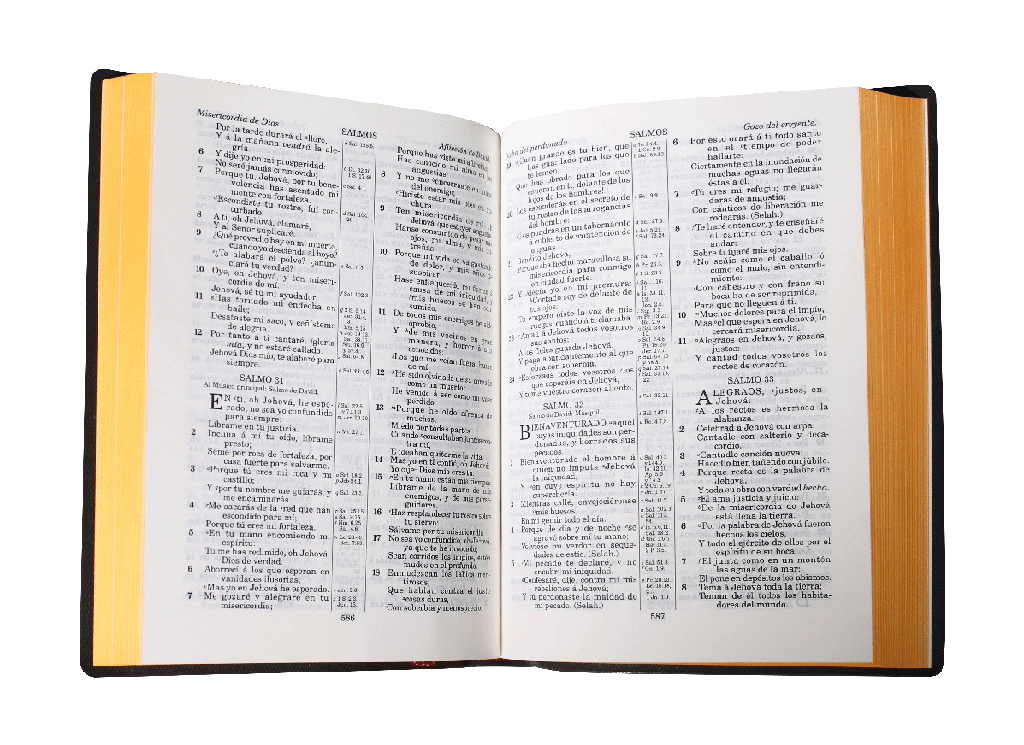 Misericordia de Dios
SALMOS
Aflicción de David
Por la tarde durará el lloro,
Y á la mañana vendrá la ale-
gría.
6 Y dije yo en mi prosperidad:
No seré jamás conmovido;
7 Porque tú, Jehová, por tu bene-
volencia has asentado mi
monte con fortaleza.
Escondiste tu rostro, fuí con-
turbado.
8 A ti, oh Jehová, clamaré,
Y al Señor suplicaré.
9 ¿Qué provecho hay en mi muerte,
cuando yo descienda al hoyo?
¿Te alabará el polvo? ¿anun-
ciará tu verdad?
10 Oye, oh Jehová, y ten miseri-
cordia de mí:
Jehová, sé tú mi ayudador.
11 Has tornado mi endecha en
baile;
Desataste mi saco, y ceñísteme
de alegría.
12 Por tanto á ti cantaré, gloria
mía, y no estaré callado.
Jehová Dios mío, te alabaré para
siempre.
SALMO 31
Al Músico principal: Salmo de David
EN ti, oh Jehová, he espe-
rado; no sea yo confundido
para siempre:
Líbrame en tu justicia.
2 Inclina á mí tu oído, líbrame
presto;
Séme por roca de fortaleza, por
casa fuerte para salvarme.
3 Porque tú eres mi roca y mi
castillo;
Y por tu nombre me guiarás y
me encaminarás.
4 Me sacarás de la red que han
escondido para mí;
Porque tú eres mi fortaleza.
5 En tu mano encomiendo mi
espíritu:
Tú me has redimido, oh Jehová
Dios de verdad.
6 Aborrecí á los que esperan en
vanidades ilusorias;
Mas yo en Jehová he esperado.
7 Me gozaré y alegraré en tu
misericordia;
Porque has visto mi aflicción;
Has conocido mi alma en las
angustias:
8 Y no me encerraste en mano
del enemigo;
Hiciste estar mis pies en an-
chura.
9 Ten misericordia de mí, oh
Jehová, que estoy en angustia:
Hanse consumido de pesar mis
ojos, mi alma, y mis en-
trañas.
10 Porque mi vida se va gastando
de dolor, y mis años de
suspirar:
Hase enflaquecido mi fuerza á
causa de mi iniquidad, y
mis huesos se han con-
sumido.
11 De todos mis enemigos he sido
oprobio,
Y de mis vecinos en gran
manera, y horror á mis
conocidos:
Los que me veían fuera, huían
de mí.
12 He sido olvidado de su corazón
como un muerto:
He venido á ser como un vaso
perdido.
13 Porque he oído afrenta de
muchos;
Miedo por todas partes,
Cuando consultaban juntos con-
tra mí,
E ideaban quitarme la vida.
14 Mas yo en ti confié, oh Jehová:
Yo dije: Dios mío eres tú.
15 En tu mano están mis tiempos:
Líbrame de la mano de mis
enemigos, y de mis perse-
guidores.
16 Haz resplandecer tu rostro sobre
tu siervo:
Sálvame por tu misericordia.
17 No sea yo confundido, oh Jehová,
ya que te he invocado;
Sean corridos los impíos, estén
mudos en el profundo.
18 Enmudezcan los labios men-
tirosos,
Que hablan contra el justo
cosas duras,
Con soberbia y menosprecio.
586
del perdonado
SALMOS
Gozo del creyente.
19 ¡Cuán grande es tu bien, que
has guardado para los que
te temen,
Que has obrado para los que
esperan en ti, delante de los
hijos de los hombres!
20 Los esconderás en el secreto de
tu rostro de las arrogancias
del hombre:
Los pondrás en un tabernáculo
á cubierto de contención de
lenguas.
21 Bendito Jehová,
Porque ha hecho maravillosa su
misericordia para conmigo
en ciudad fuerte.
22 Y decía yo en mi premura:
Cortado soy de delante de
tus ojos:
Tú empero oíste la voz de mis
ruegos, cuando á ti clamaba.
23 Amad á Jehová todos vosotros
sus santos:
A los fieles guarda Jehová,
Y paga abundantemente al que
obra con soberbia.
24 Esforzaos todos vosotros los
que esperáis en Jehová,
Y tome vuestro corazón aliento.
SALMO 32
Salmo de David: Masquil
BIENAVENTURADO aquel
cuyas iniquidades son per-
donadas, y borrados sus
pecados.
2 Bienaventurado el hombre á
quien no imputa Jehová
la iniquidad,
Y en cuyo espíritu no hay
superchería.
3 Mientras callé, envejeciéronse
mis huesos
En mi gemir todo el día.
4 Porque de día y de noche se
agravó sobre mí tu mano;
Volvióse mi verdor en seque-
dades de estío. (Selah.)
5 Mi pecado te declaré, y no
encubrí mi iniquidad.
Confesaré, dije, contra mí mis
rebeliones á Jehová;
Y tú perdonaste la maldad de
mi pecado. (Selah.)
6 Por esto orará á ti todo santo
en el tiempo de poder
hallarte:
Ciertamente en la inundación de
muchas aguas no llegarán
éstas á él.
7 Tú eres mi refugio; me guar-
darás de angustia;
Con cánticos de liberación me
rodearás. (Selah.)
8 Te haré entender, y te enseñaré
el camino en que debes
andar:
Sobre ti fijaré mis ojos.
9 No seáis como el caballo, ó
como el mulo, sin entendi-
miento:
Con cabestro y con freno su
boca ha de ser reprimida,
Para que no lleguen á ti.
10 Muchos dolores para el impío;
Mas el que espera en Jehová, lo
cercará misericordia.
11 Alegraos en Jehová, y gozaos,
justos:
Y cantad todos vosotros los
rectos de corazón.
SALMO 33
ALEGRAOS, justos, en
Jehová:
A los rectos es hermosa la
alabanza.
2 Celebrad á Jehová con arpa:
Cantadle con salterio y deca-
cordio.
3 Cantadle canción nueva:
Hacedlo bien tañendo con júbilo.
4 Porque recta es la palabra de
Jehová,
Y toda su obra con verdad hecha.
5 El ama justicia y juicio:
De la misericordia de Jehová
está llena la tierra.
6 Por la palabra de Jehová fueron
hechos los cielos,
Y todo el ejército de ellos por el
espíritu de su boca.
7 El junta como en un montón
las aguas de la mar:
El pone en depósitos los abismos.
8 Tema á Jehová toda la tierra:
Teman de él todos los habita-
dores del mundo.
587